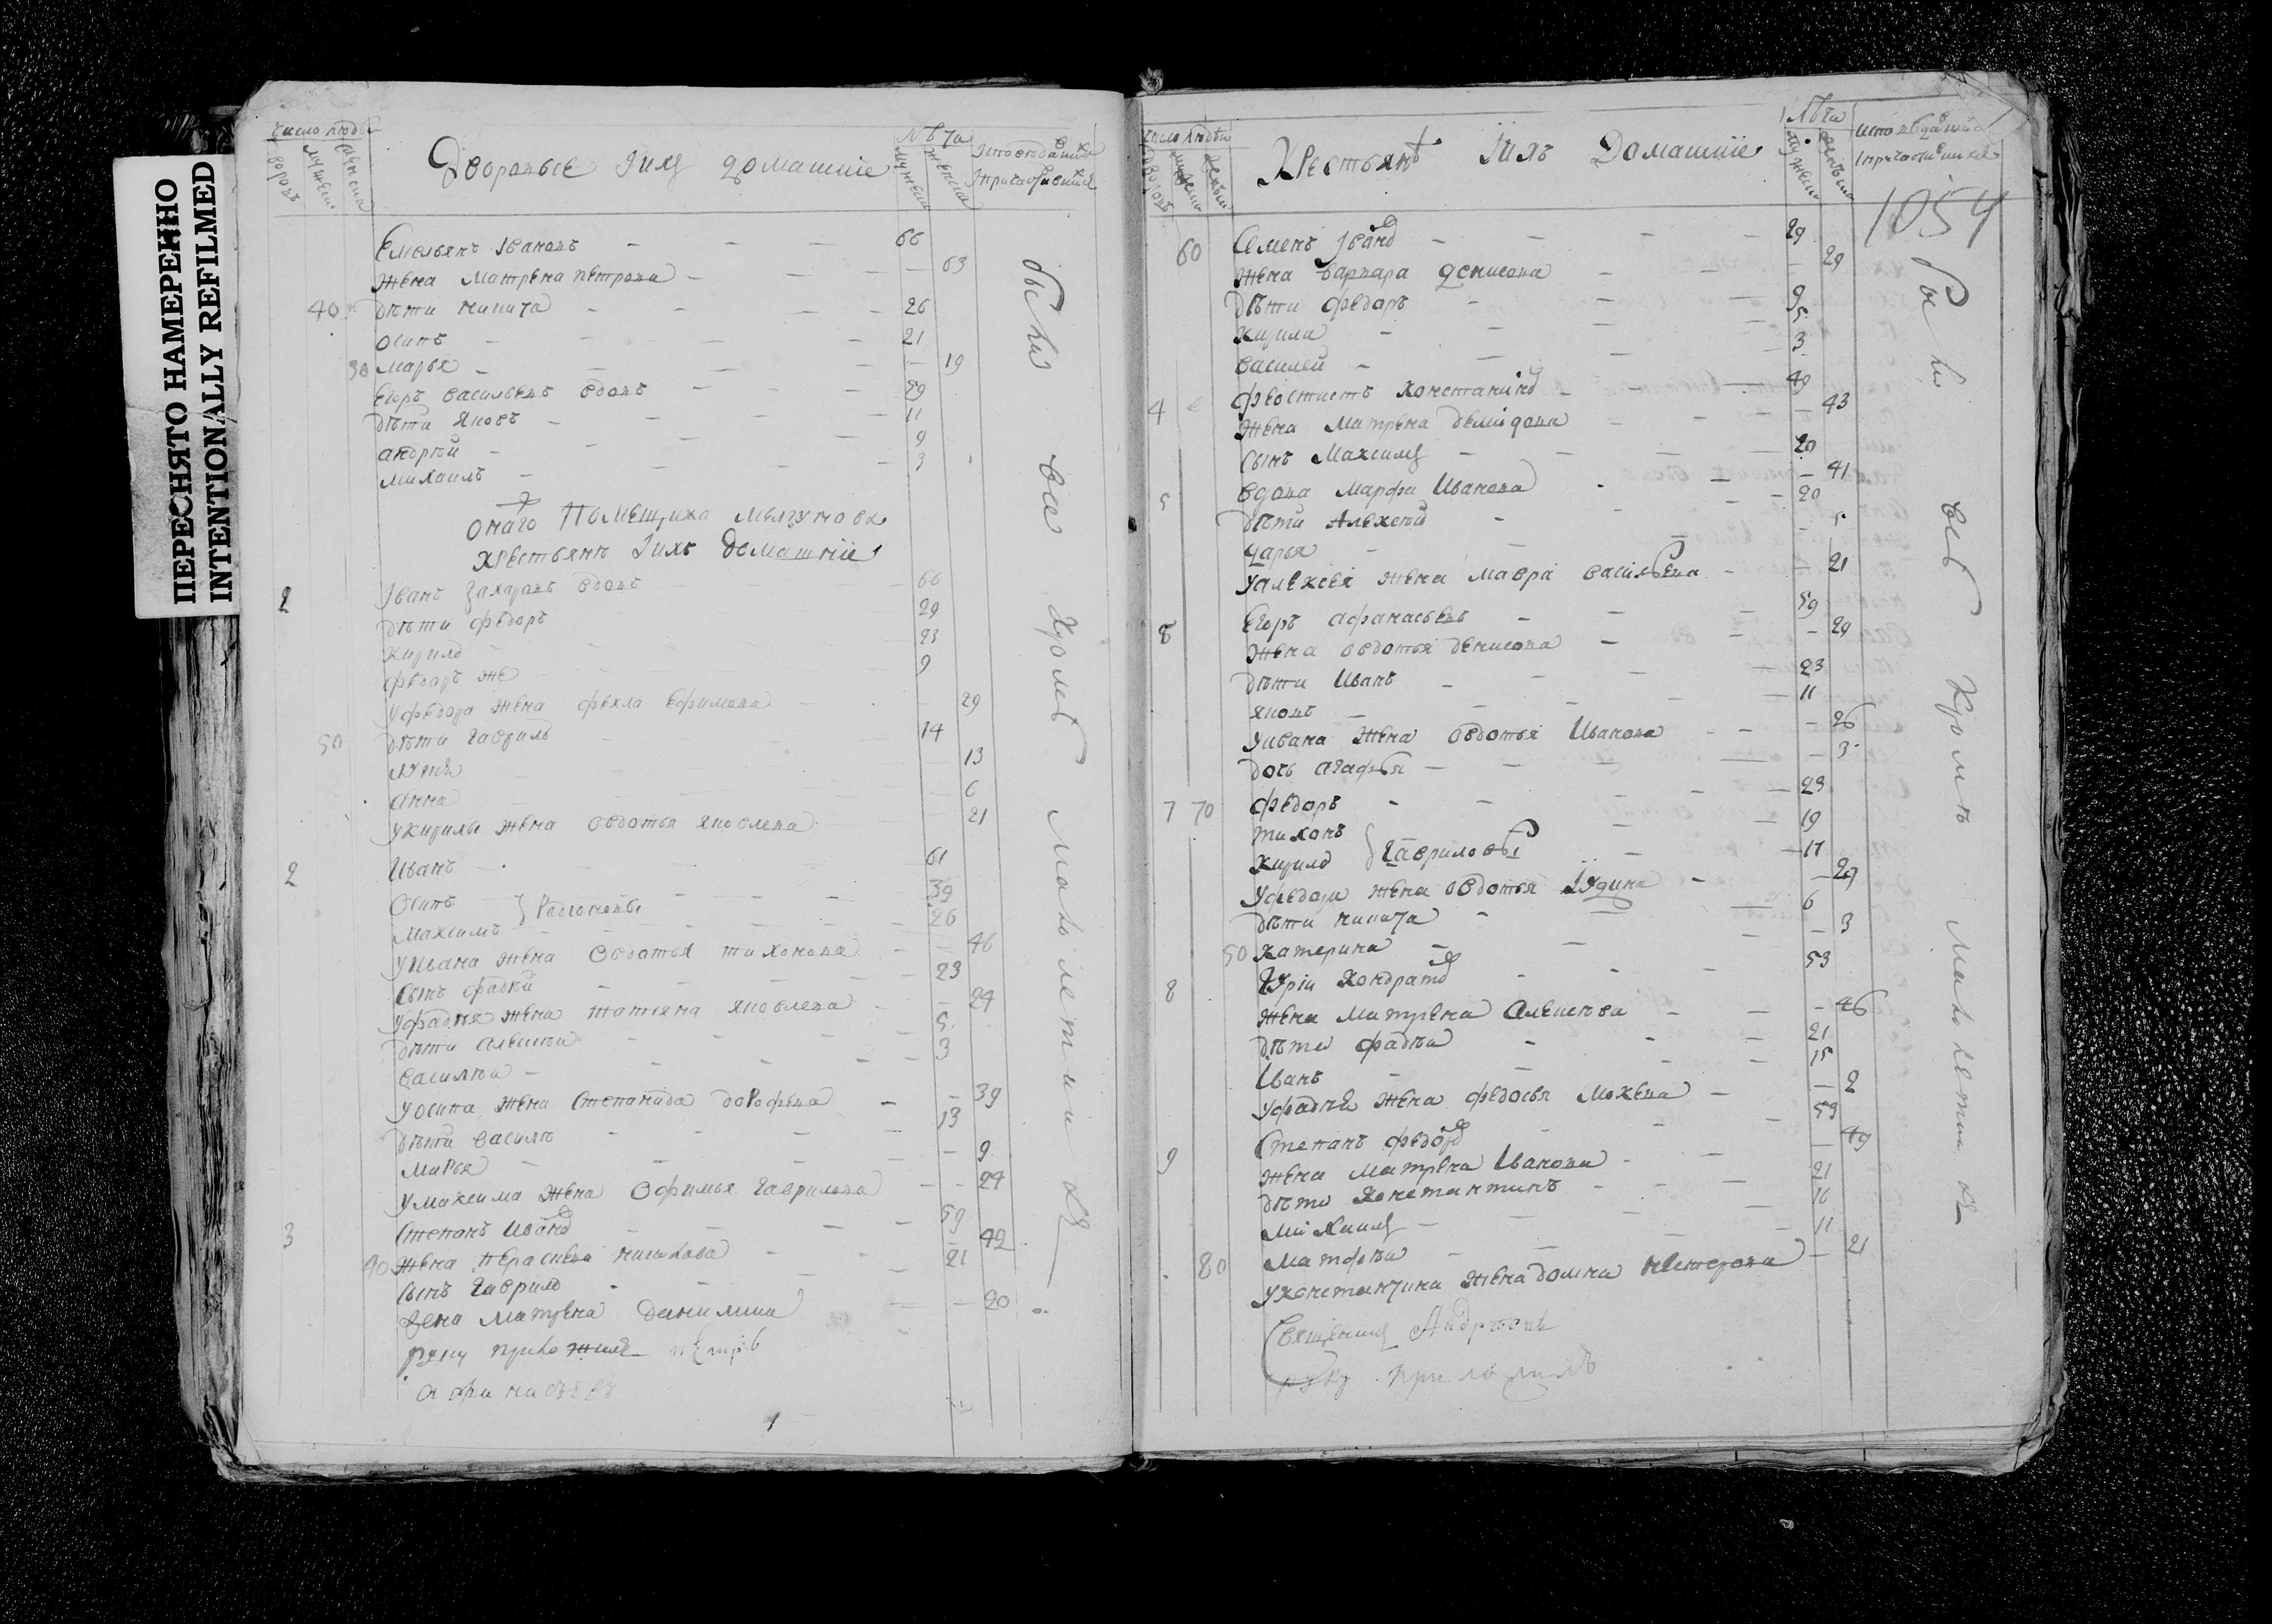 ПЕРЕСНЯТО НАМЕРЕННО
INTENTIONALLY REFILMED
число людей
дворовъ
мужеск
женска
Дворовые Iихъ домашнiе
Лѣта
мужеска
женска
Емельянъ Iвановъ — — — 66
Жена Матрена петрова — — — 63
40 дѣти никита — — — 26
осипъ — — — 21
30 Марья — — — 19
Егоръ васильевъ вдовъ — — — 59
дѣти Яковъ — — — 11
андрѣй — — — 9
михаилъ — — — 3
онаго Помещика
крестьянѣ Iихъ домашнiе
2 Iванъ захаровъ вдовъ 66
дѣти федоръ 29
кирило 23
федоръ же 9
уфедора жена фекла ефимова 29
50 дѣти гаврило 14
13
анна 6
укирилы жена овдотья яковлева 21
2 Иванъ 61
Осипъ } Радионовы 39
Максимъ 26
уИвана жена Овдотья тихонова 46
сынъ фадѣй 23
уфадѣя жена татьяна яковлева 24
дѣти алексѣй 5
василѣй 3
уосипа жена степанида дорофева 39
дѣти василѣ 13
Марья 9
умаксима жена Офимья гаврилова 24
3 Степанъ Ивановъ 59
40 жена 42
сынъ гаврило 21
жена матрена данилина 20
были все кроме малолетних
руку приложилъ
число людѣй
дворовъ
Крестьянѣ Iихъ Домашнiе
Лѣта
мужеск
женска
1054
60 Семенъ Iвановъ — — — 29
жена варвара денисова — — 29
дѣти федоръ — — — 9
кирила — — — 5
василей — — — 3
4 феостистъ константиновъ — — 49
жена Матрена демидова — — 43
сынъ Максимъ — — — 20
5 вдова марфа Иванова — — 41
дѣти Алексей — — — 20
дарья — — — 5
уалексея жена мавра васильева — 21
6 егоръ афанасьевъ — — 59
жена овдотья денисова — — 29
дѣти Иванъ — — — 23
яковъ — — — 11
уивана жена овдотья Иванова — — 26
дочь агафья — — — 3
7 70 федоръ — — — 23
тихонъ } гавриловы — 19
кирило — 17
уфедора жена овдотья — 29
дѣти никита — — — 6
50 катерина — — — 3
8 Юрiи кондратовъ — — — 53
жена матрена Алексеева — — 46
дѣти фадѣй — — — 21
Иванъ — — — 15
уфадѣя жена федосья — 2
9 Степанъ федоровъ — — 59
жена матрена Иванова — — 49
дѣти константинъ — — — 21
михаилъ — — — 16
80 матфѣй — — — 11
уконстантина жена домна — 21
были все кромѣ малолетних
Священникъ Андрѣевъ
руку приложилъ